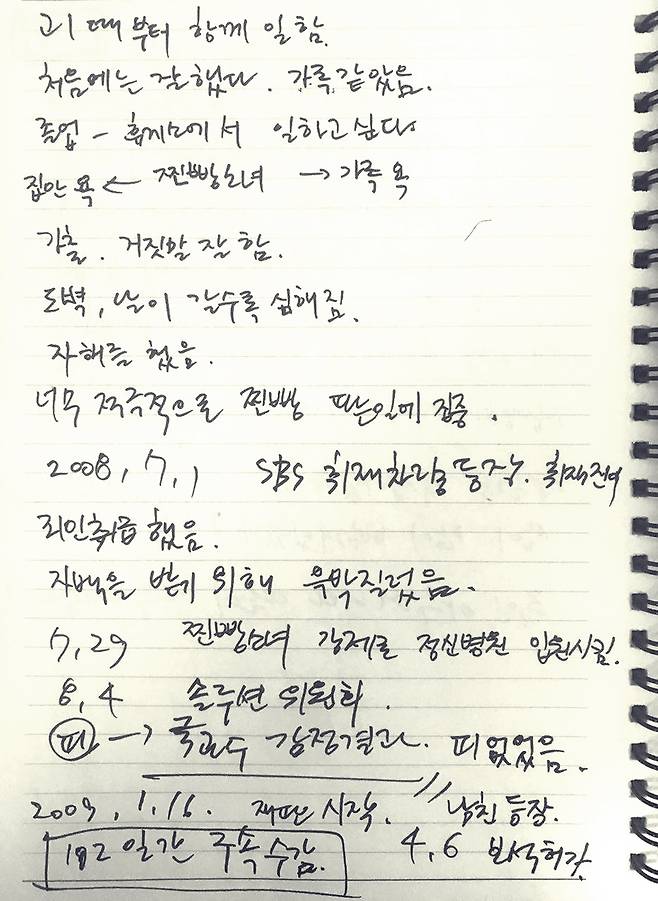 고1 때부터 함께 일함.
처음에는 잘했다. 가족같았음.
졸업 - 휴게소에서 일하고싶다
집안 욕 ← 찐빵소녀 → 가족 욕
가출. 거짓말 잘 함.
도벽, 날이 갈수록 심해짐.
자해를 했음.
너무 적극적으로 찐빵 파는일에 집중.
2008, 7, 1 SBS 취재차량 등장.
죄인취급 했음.
자백을 받기 위해 윽박질렀음.
7, 29 찐빵소녀 강제로 정신병원 입원시킴.
8, 4 솔루션 위원회.
피 → 국과수 감정결과. 피 없었음.
2009, 1, 16. 재판 시작. 남친 등장.
192일간 구속수감. 4, 6 보석허가